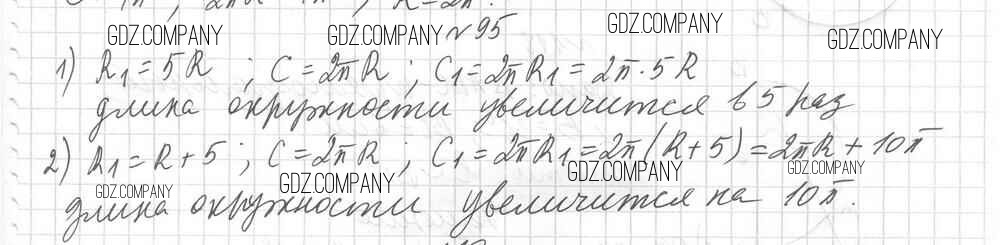 GDZ.COMPANY GDZ.COMPANY №95 GDZ.COMPANY GDZ.COMPANY
1) R₁=5R ; C=2πR ; C₁=2πR₁=2π·5R
длина окружности увеличится в 5 раз
2) R₁=R+5 ; C=2πR ; C₁=2πR₁=2π(R+5)=2πR+10π
GDZ.COMPANY GDZ.COMPANY GDZ.COMPANY GDZ.COMPANY
длина окружности увеличится на 10π.